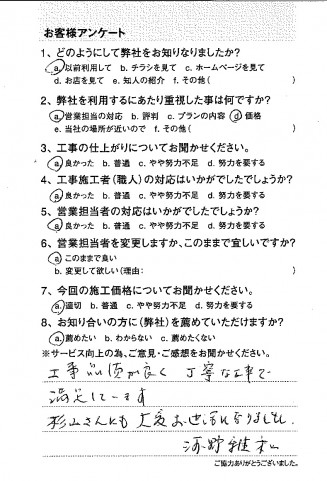 お客様アンケート
1、どのようにして弊社をお知りなりましたか?
a.以前利用して b.チラシを見て c.ホームページを見て
d.お店を見て e.知人の紹介 f.その他( )
2、弊社を利用するにあたり重視した事は何ですか?
a.営業担当の対応 b.評判 c.プランの内容 d.価格
e.当社の場所が近いので f.その他( )
3、工事の仕上がりについてお聞かせください。
a.良かった b.普通 c.やや努力不足 d.努力を要する
4、工事施工者(職人)の対応はいかがでしたでしょうか?
a.良かった b.普通 c.やや努力不足 d.努力を要する
5、営業担当者の対応はいかがでしたでしょうか?
a.良かった b.普通 c.やや努力不足 d.努力を要する
6、営業担当者を変更しますか、このままで宜しいですか?
a.このままで良い
b.変更して欲しい(理由: )
7、今回の施工価格についてお聞かせください。
a.適切 b.普通 c.やや努力不足 d.努力を要する
8、お知り合いの方に(弊社)を薦めていただけますか?
a.薦めたい b.わからない c.薦めたくない
※サービス向上の為、ご意見・ご感想をお聞かせください。
工事 が良く 丁寧な工事で
満足しています
杉山さんにも 大変お世話になりました。
河野
ご協力ありがとうございました。